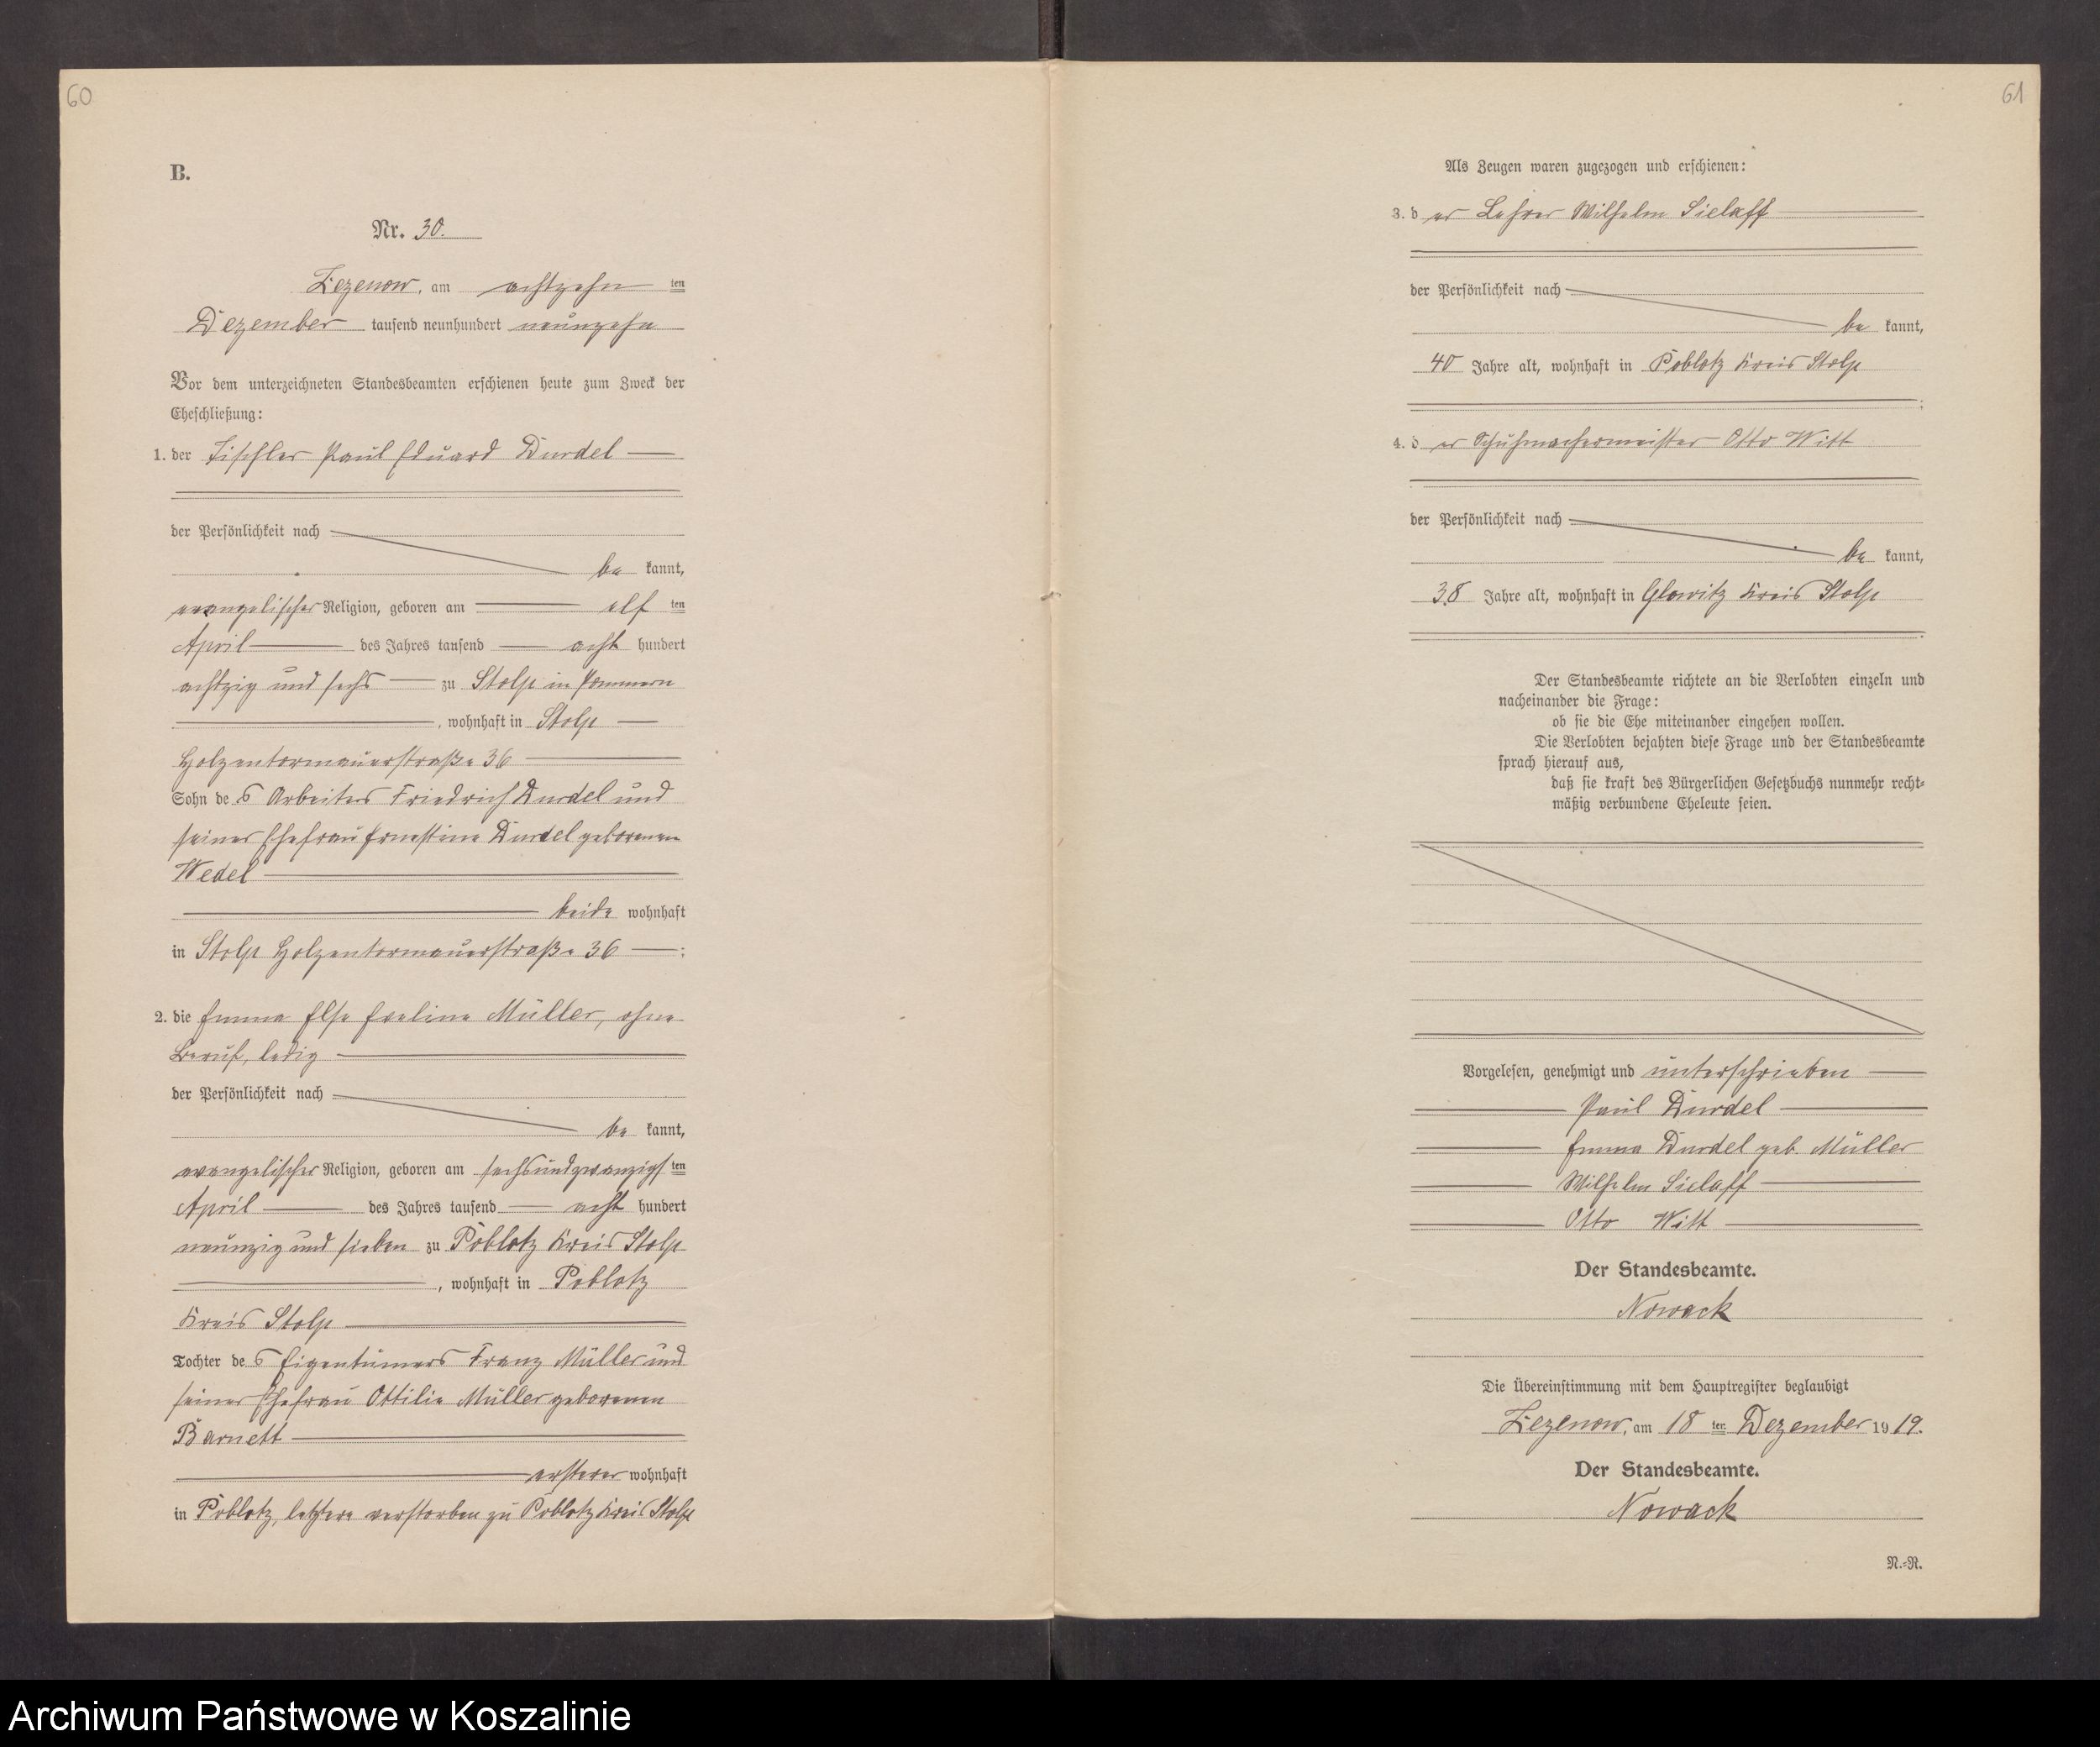 60
B.
Nr. 30.
Zezenow, am achtzehn ten
Dezember tausend neunhundert neunzehn
Vor dem unterzeichneten Standesbeamten erschienen heute zum Zweck der
Eheschließung:
1. der Tischler Paul Eduard Durdel
der Persönlichkeit nach
be kannt,
evangelischer Religion, geboren am elf ten
April des Jahres tausend acht hundert
achtzig und sechs zu Stolp in Pommern
, wohnhaft in Stolp
Holzentormauerstraße 36
Sohn des Arbeiters Friedrich Durdel und
seiner Ehefrau Ernestine Durdel geborenen
Wedel
beide wohnhaft
in Stolp Holzentormauerstraße 36 ;
2. die Emma Else Eveline Müller, ohne
Beruf, ledig
der Persönlichkeit nach
be kannt,
evangelischer Religion, geboren am sechsundzwanzigsten
April des Jahres tausend acht hundert
neunzig und sieben zu Poblotz Kreis Stolp
, wohnhaft in Poblotz
Kreis Stolp
Tochter des Eigentümers Franz Müller und
seiner Ehefrau Ottilie Müller geborenen
Barnett
ersterer wohnhaft
in Poblotz, letztere verstorben zu Poblotz Kreis Stolp
61
Als Zeugen waren zugezogen und erschienen:
3. der Lehrer Wilhelm Sielaff
der Persönlichkeit nach
be kannt,
40 Jahre alt, wohnhaft in Poblotz Kreis Stolp
;
4. der Schuhmachermeister Otto Witt
der Persönlichkeit nach
be kannt,
38 Jahre alt, wohnhaft in Glowitz Kreis Stolp
.
Der Standesbeamte richtete an die Verlobten einzeln und
nacheinander die Frage:
ob sie die Ehe miteinander eingehen wollen.
Die Verlobten bejahten diese Frage und der Standesbeamte
sprach hierauf aus,
daß sie kraft des Bürgerlichen Gesetzbuchs nunmehr recht-
mäßig verbundene Eheleute seien.
Vorgelesen, genehmigt und unterschrieben
Paul Durdel
Emma Durdel geb. Müller
Wilhelm Sielaff
Otto Witt
Der Standesbeamte.
Nowack
Die Übereinstimmung mit dem Hauptregister beglaubigt
Zezenow, am 18 ten Dezember 1919.
Der Standesbeamte.
Nowack
N.-R.
Archiwum Państwowe w Koszalinie